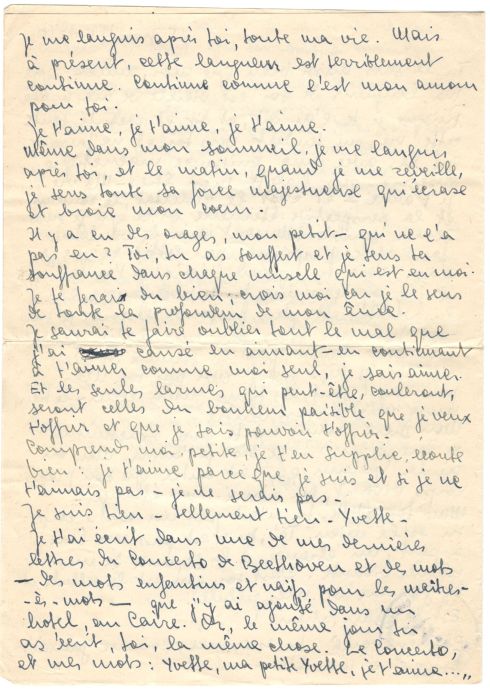 Je me languis après toi, toute ma vie. Mais
à présent, cette langueur est terriblement
continue. Continue comme l'est mon amour
pour toi.
Je t'aime, je t'aime, je t'aime.
Même dans mon sommeil, je me languis
après toi, et le matin, quand je me réveille,
je sens toute sa force majestueuse qui écrase
et broie mon coeur.
Il y a eu des orages, mon petit - qui ne l'a
pas eu? Toi, tu as souffert et je sens ta
souffrance dans chaque muscle qui est en moi.
Je te ferais du bien, crois moi car je le sens
de toute la profondeur de mon Âme.
Je saurai te faire oublier tout le mal que
j'ai causé en aimant - en continuant
t'aimer comme moi seul, je sais aimer.
Et les seules larmes qui peut-être, couleront,
seront celles du bonheur paisible que je veux
t'offrir et que je sais pouvoir t'offrir.
Comprends moi petite, je t'en supplie, écoute
bien : je t'aime parce que je suis et si je ne
t'aimais pas - je ne serais pas -
Je suis tien - tellement tien - Yvette -
Je t'ai écrit dans une de mes dernières
lettres du Concerto de Beethoven et des mots
- des mots enfantins et naïfs pour les maîtres-
-ès-mots - que j'y ai ajouté dans un
hotel, au Caire. Or, le même jour tu
as écrit, toi, la même chose. Le Concerto,
et mes mots : Yvette, ma petite Yvette, je t'aime....,